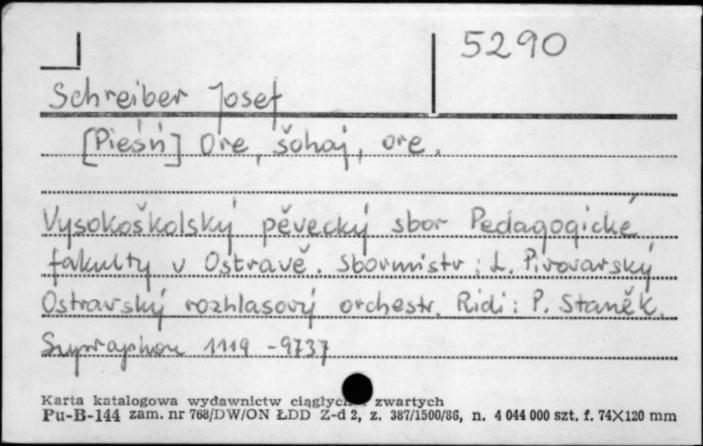 5290
Schreiber Josef
[Pieśń] Oře, šohaj, ore.
Vysokoškolský pěvecký sbor Pedagogické
fakulty v Ostravě. Sbormistr: L. Pivovarský
Ostravský rozhlasový orchestr. Řidi: P. Staněk.
Supraphon 1119 - 9737
Karta katalogowa wydawnictw ciągłych zwartych
Pu-B-144 zam. nr 768/DW/ON ŁDD Z-d 2, z. 387/1500/86, n. 4 044 000 szt. f. 74X120 mm